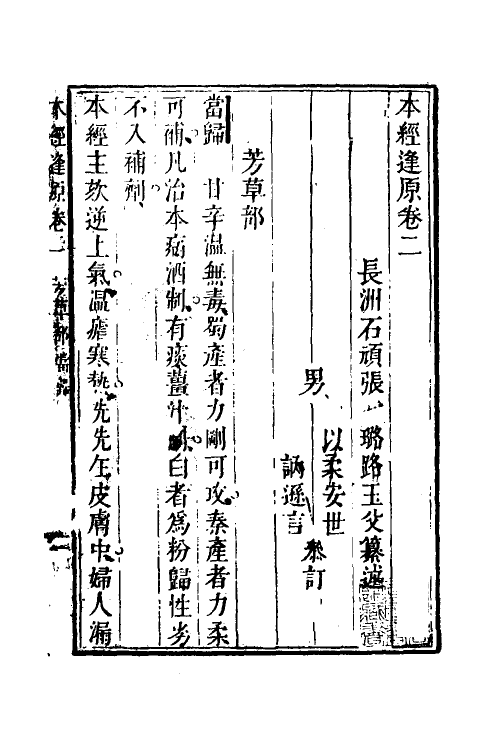 本經逢原卷二
長洲石頑張璐路玉父纂述
男 以柔安世
訥遜言 叅訂
芳草部
當歸 甘辛溫無毒蜀產者力剛可攻秦產者力柔
可補凡治本病酒制有痰薑汁制白者為粉歸性劣
不入補劑
本經主欬逆上氣溫瘧寒熱洗洗在皮膚中婦人漏
本經逢原卷二 芳草部 當歸